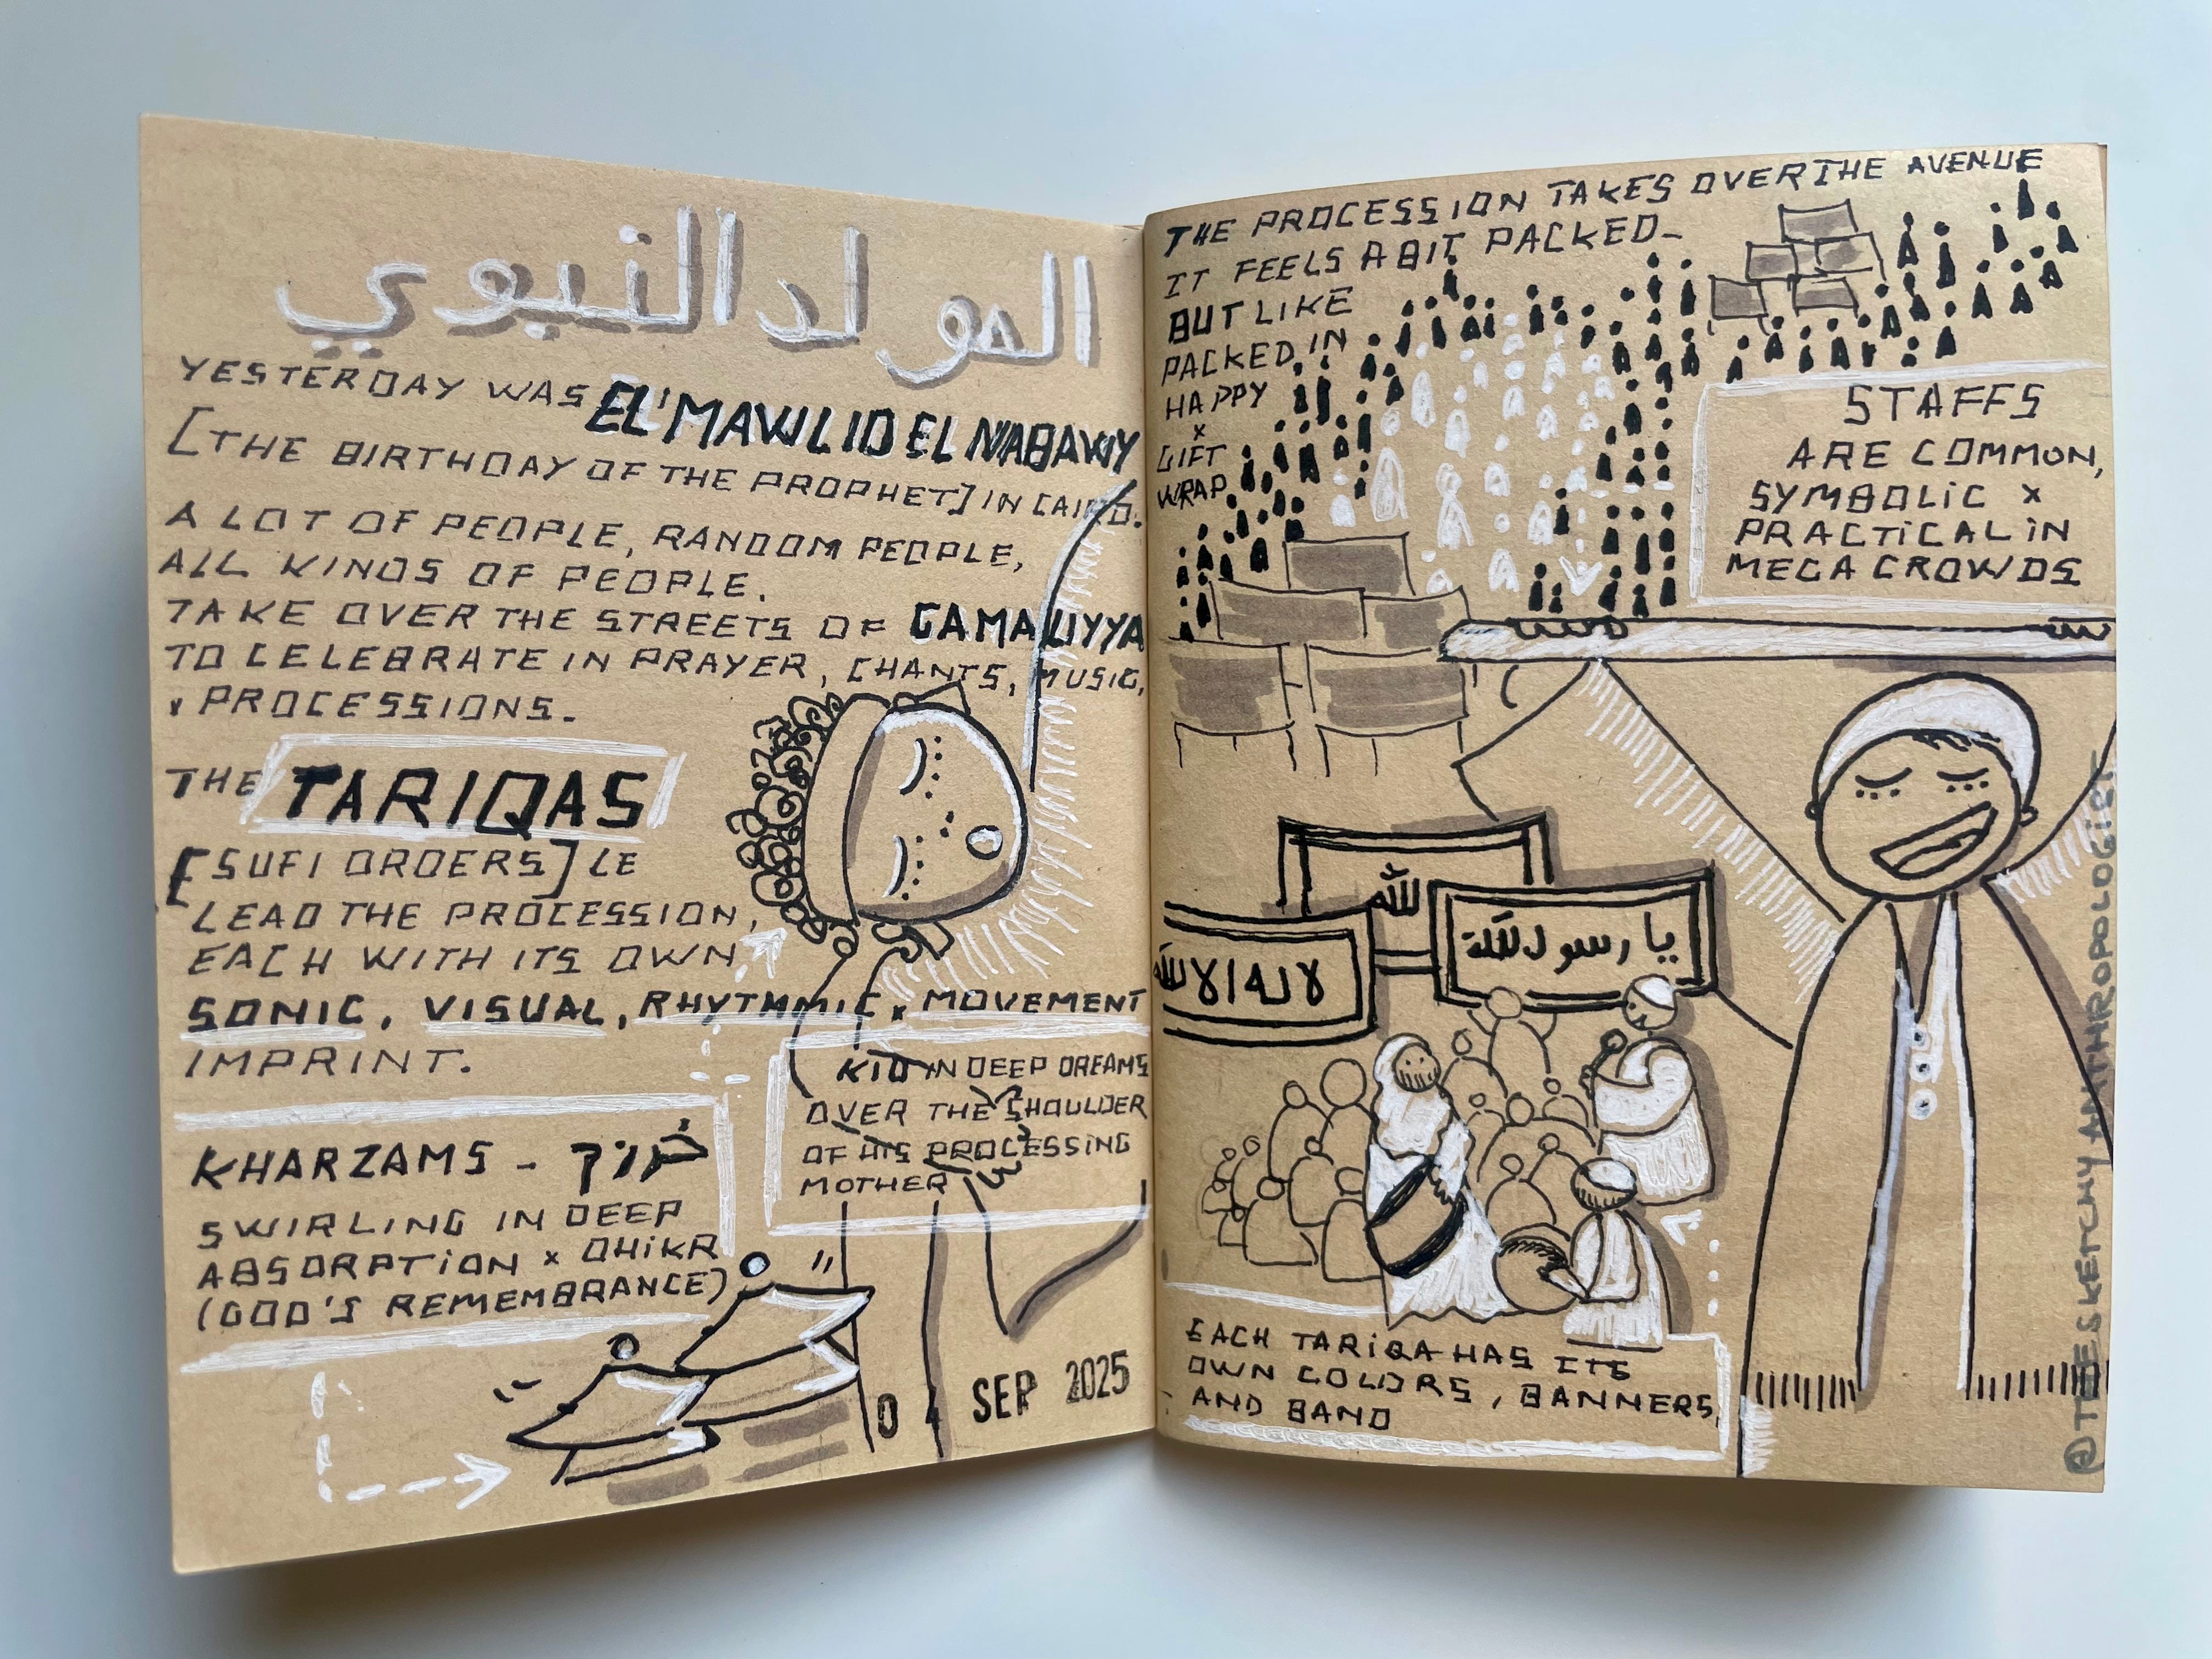 المولد النبوي
YESTERDAY WAS EL'MAWLID EL NABAWIY
[THE BIRTHDAY OF THE PROPHET] IN CAIRO.
A LOT OF PEOPLE, RANDOM PEOPLE,
ALL KINDS OF PEOPLE.
TAKE OVER THE STREETS OF GAMALIYYA
TO CELEBRATE IN PRAYER, CHANTS, MUSIC,
x PROCESSIONS.
THE TARIQAS
[SUFI ORDERS] LE
LEAD THE PROCESSION,
EACH WITH ITS OWN
SONIC, VISUAL, RHYTHMIC x MOVEMENT
IMPRINT.
KID IN DEEP DREAMS
OVER THE SHOULDER
OF HIS PROCESSING
MOTHER
KHARZAMS -
SWIRLING IN DEEP
ABSORPTION x DHIKR
(GOD'S REMEMBRANCE)
04 SEP 2025
THE PROCESSION TAKES OVER THE AVENUE
IT FEELS A BIT PACKED-
BUT LIKE
PACKED IN
HAPPY
x
GIFT
WRAP
STAFFS
ARE COMMON,
SYMBOLIC x
PRACTICAL IN
MEGA CROWDS
الله
يا رسول الله
لا له الا الله
EACH TARIQA HAS ITS
OWN COLORS, BANNERS
AND BAND
@TEESKETCHYANTHROPOLOGIST